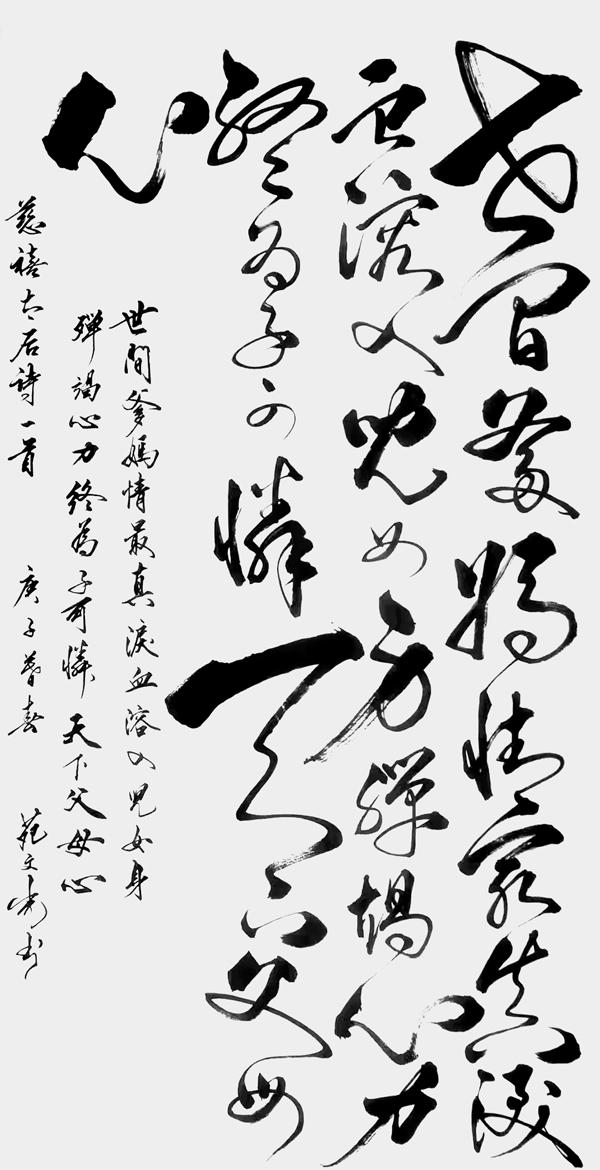 世間爹媽情最真淚
血溶入兒女身殫竭心力
終為子可憐天下父母
心
世間爹媽情最真淚血溶入兒女身
殫竭心力終為子可憐天下父母心
慈禧太后詩一首 庚子暮春 苑文书